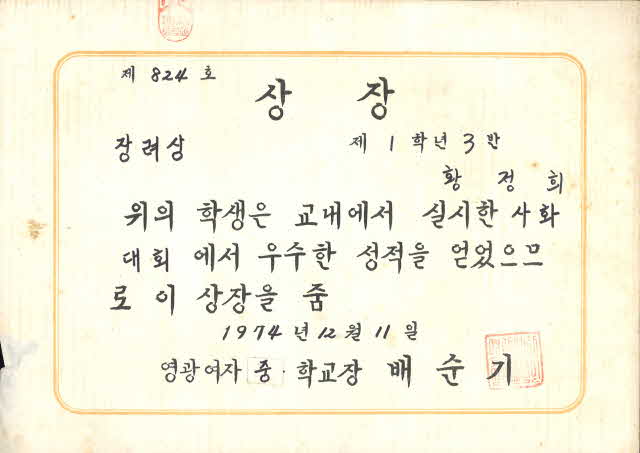 제 824 호
상 장
장려상 제 1 학년 3 반
황 정 희
위의 학생은 교내에서 실시한 사화
대회 에서 우수한 성적을 얻었으므
로 이 상장을 줌
1974 년 12 월 11 일
영광여자 중·학교장 배 순 기